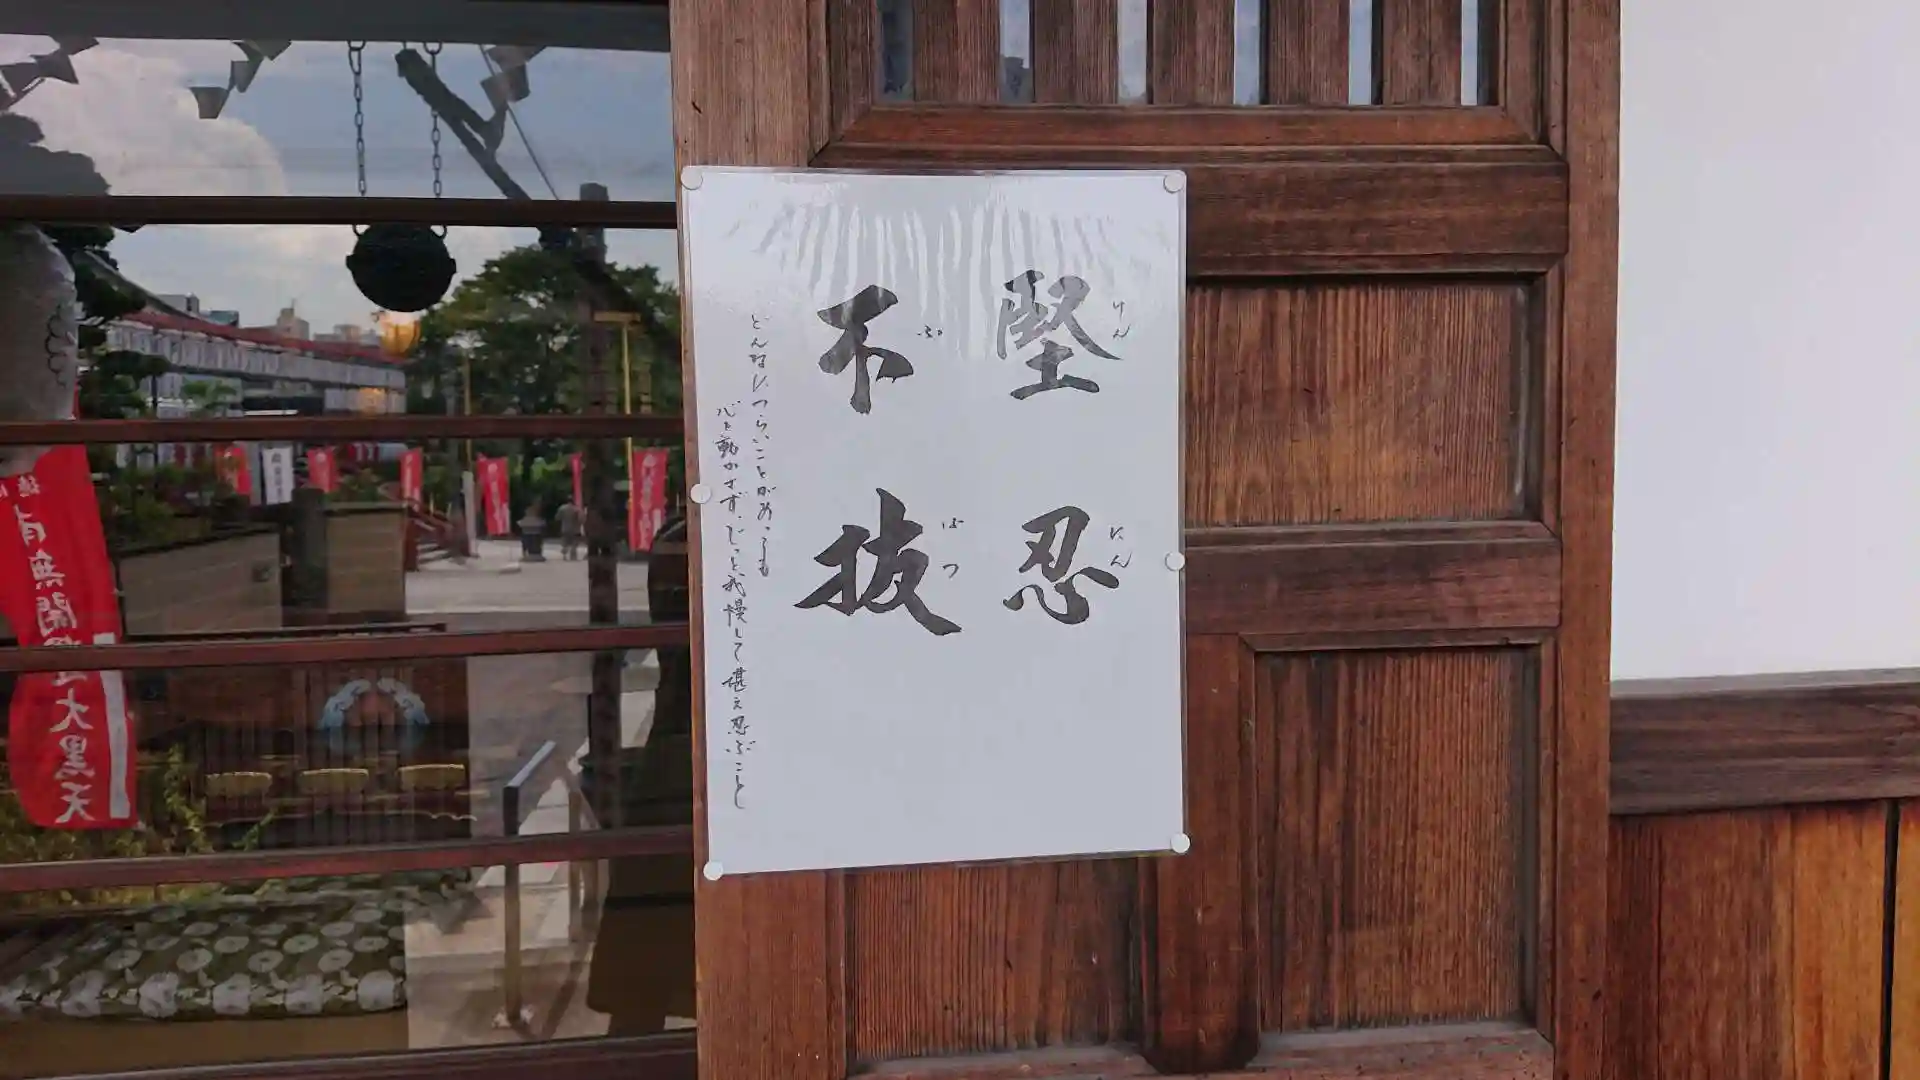 堅忍
けんにん
不抜
ふばつ
どんなに、つらいことがあっても
心を動かさず、じっと我慢して堪え忍ぶこと
有無
大黒天